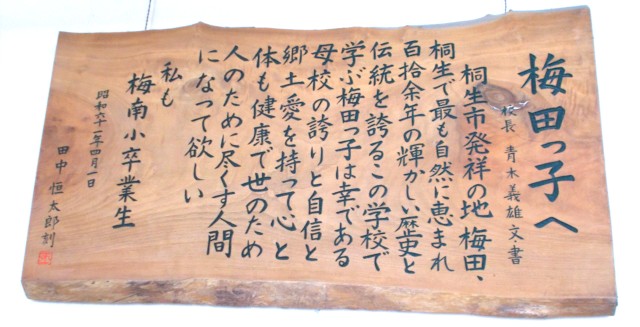 梅田っ子へ
校長 青木義雄文・書
桐生市発祥の地梅田、
桐生で最も自然に恵まれ
百拾余年の輝かしい歴史と
伝統を誇るこの学校で
学ぶ梅田っ子は幸である
母校の誇りと自信と
郷土愛を持って心と
体も健康で世のため
人のために尽くす人間
になって欲しい
私も
梅南小卒業生
昭和六十一年四月一日
田中恒太郎刻